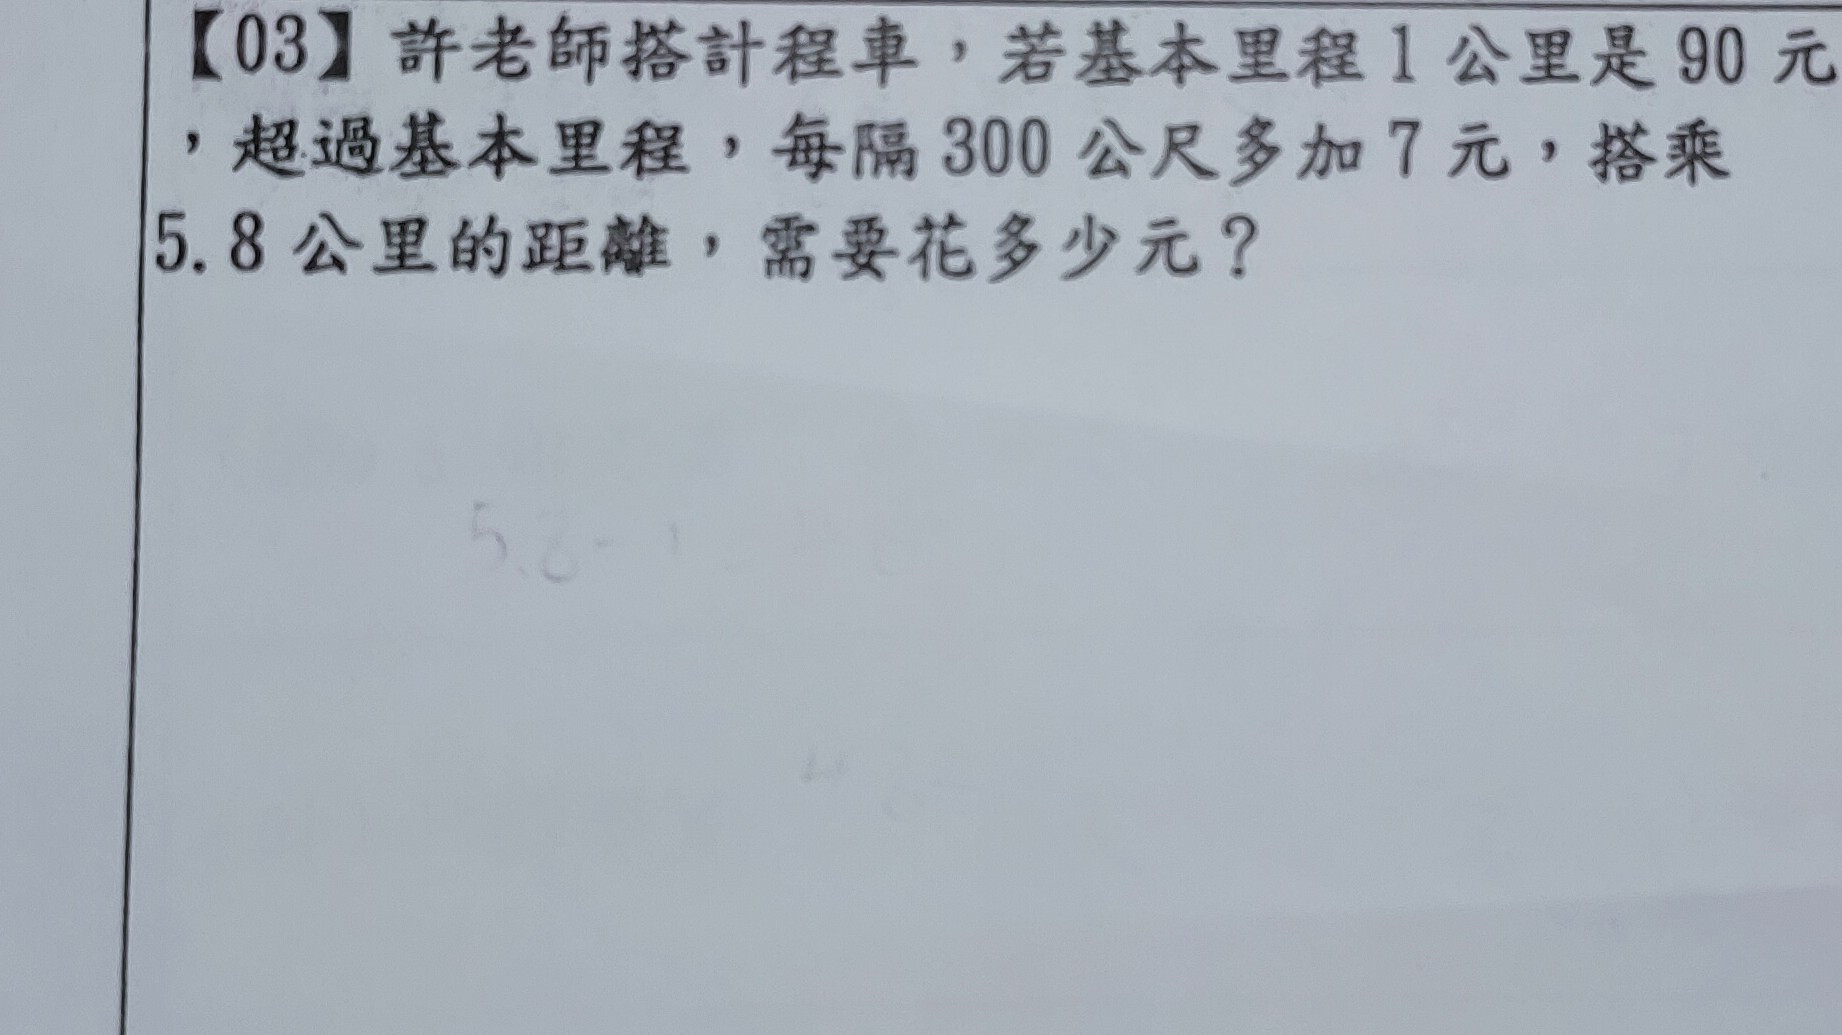 【03】許老師搭計程車，若基本里程1公里是90元
，超過基本里程，每隔300公尺多加7元，搭乘
5.8公里的距離，需要花多少元？
5.8-1